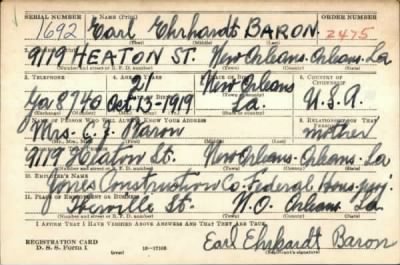 SERIAL NUMBER 1. NAME (Print) ORDER NUMBER
1692 Earl Ehrhardt BARON 2475
(First) (Middle) (Last)
2. ADDRESS (Print)
9119 HEATON ST. New Orleans. Orleans. La
(Number and street or R. F. D. number) (Town) (County) (State)
3. TELEPHONE 4. AGE IN YEARS 5. PLACE OF BIRTH 6. COUNTRY OF CITIZENSHIP
21 New Orleans
Ga 8740 Oct-13-1919 La. U.S.A.
7. NAME OF PERSON WHO WILL ALWAYS KNOW YOUR ADDRESS 8. RELATIONSHIP OF THAT PERSON
Mrs. E. J. Baron mother
9. ADDRESS OF THAT PERSON
9119 Heaton St. New Orleans. Orleans. La
(Number and street or R. F. D. number) (Town) (County) (State)
10. EMPLOYER'S NAME
Jones Construction Co. Federal Hous. proj.
11. PLACE OF EMPLOYMENT OR BUSINESS
Iberville St. N.O. Orleans. La
(Number and street or R. F. D. number) (Town) (County) (State)
I AFFIRM THAT I HAVE VERIFIED ABOVE ANSWERS AND THAT THEY ARE TRUE.
REGISTRATION CARD
D. S. S. Form 1 (over) 16-17105 Earl Ehrhardt Baron
(Registrant's signature)